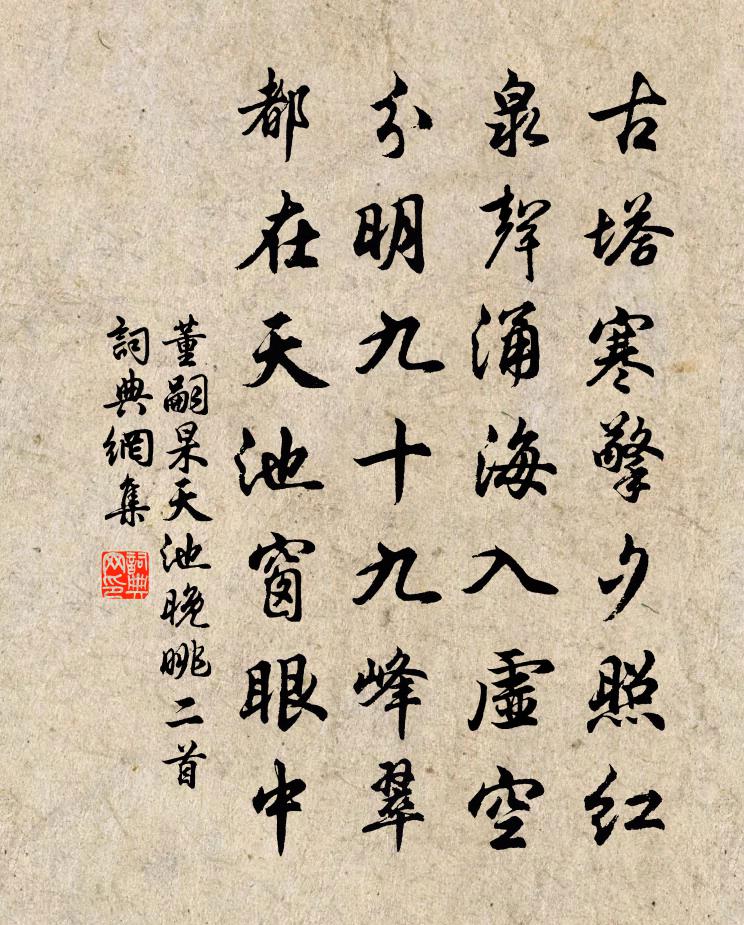 古塔寒擎夕照紅
泉聲涌海入虛空
分明九十九峰翠
都在天池窗眼中
董嗣杲天池晚眺二首
詞典網集
詞典网印